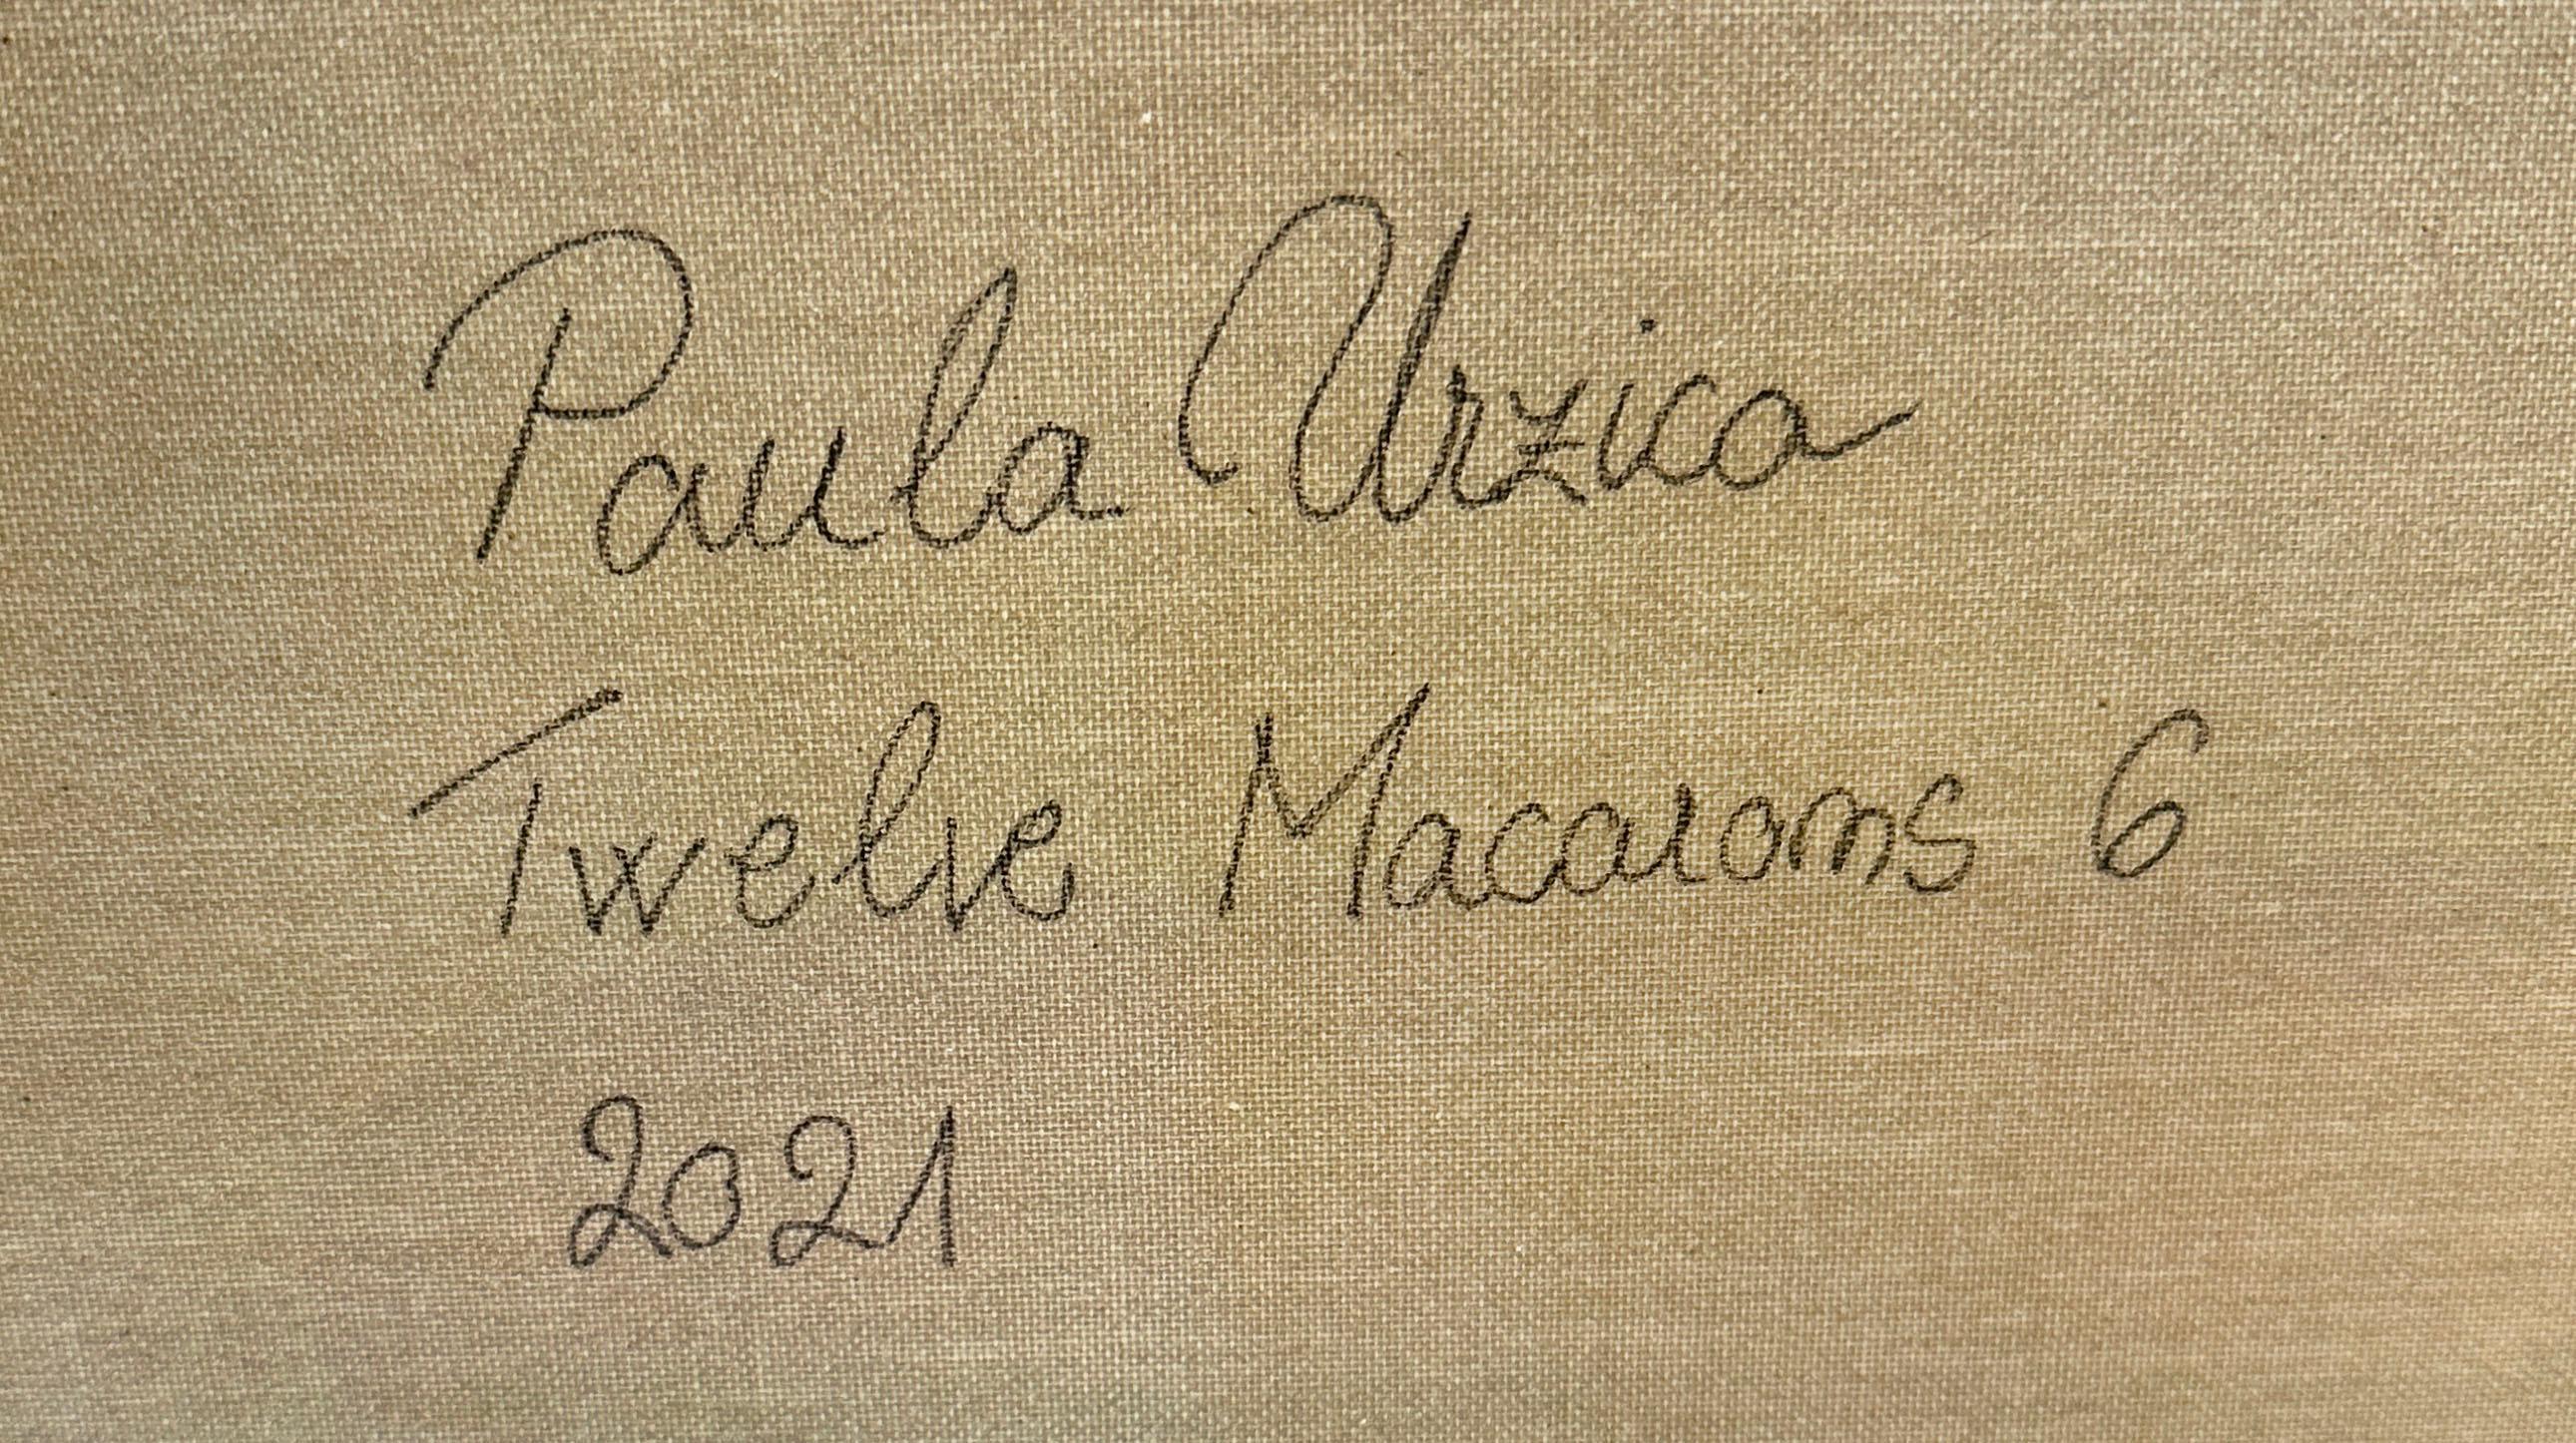 Paula Urzica
Twelve Macarons 6
2021